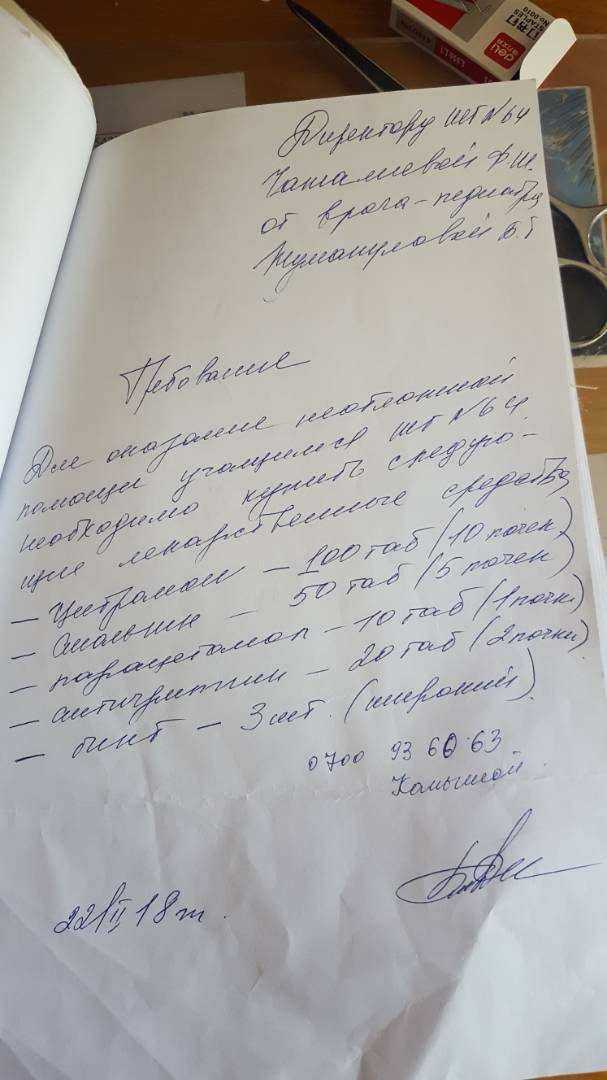 deli
STAPLES
No.0010
Директору ШГ №64
Чаталиевой Ф.Ш.
от врача-педиатра
Жумакуловой Б.Т
Требование
Для оказание неотложной
помощи учащимся ШГ №64
необходимо купить следую-
щие лекарственные средства,
— Цитрамон — 100 таб (10 почек)
— Анальгин — 50 таб (5 почек)
— парацетамол — 10 таб (1 почки)
— антигриппин — 20 таб (2 почки)
— бинт — 3 шт. (широкий).
0700 93 60 63
22/II 18 г.